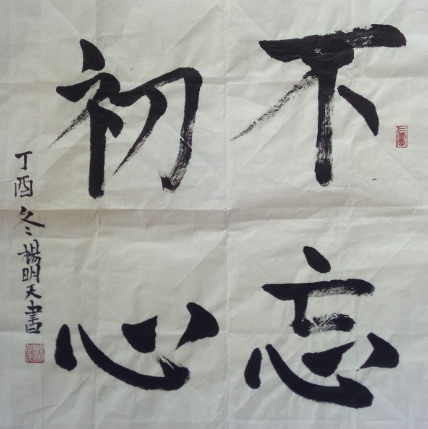 不忘
初心
丁酉冬楊明天書